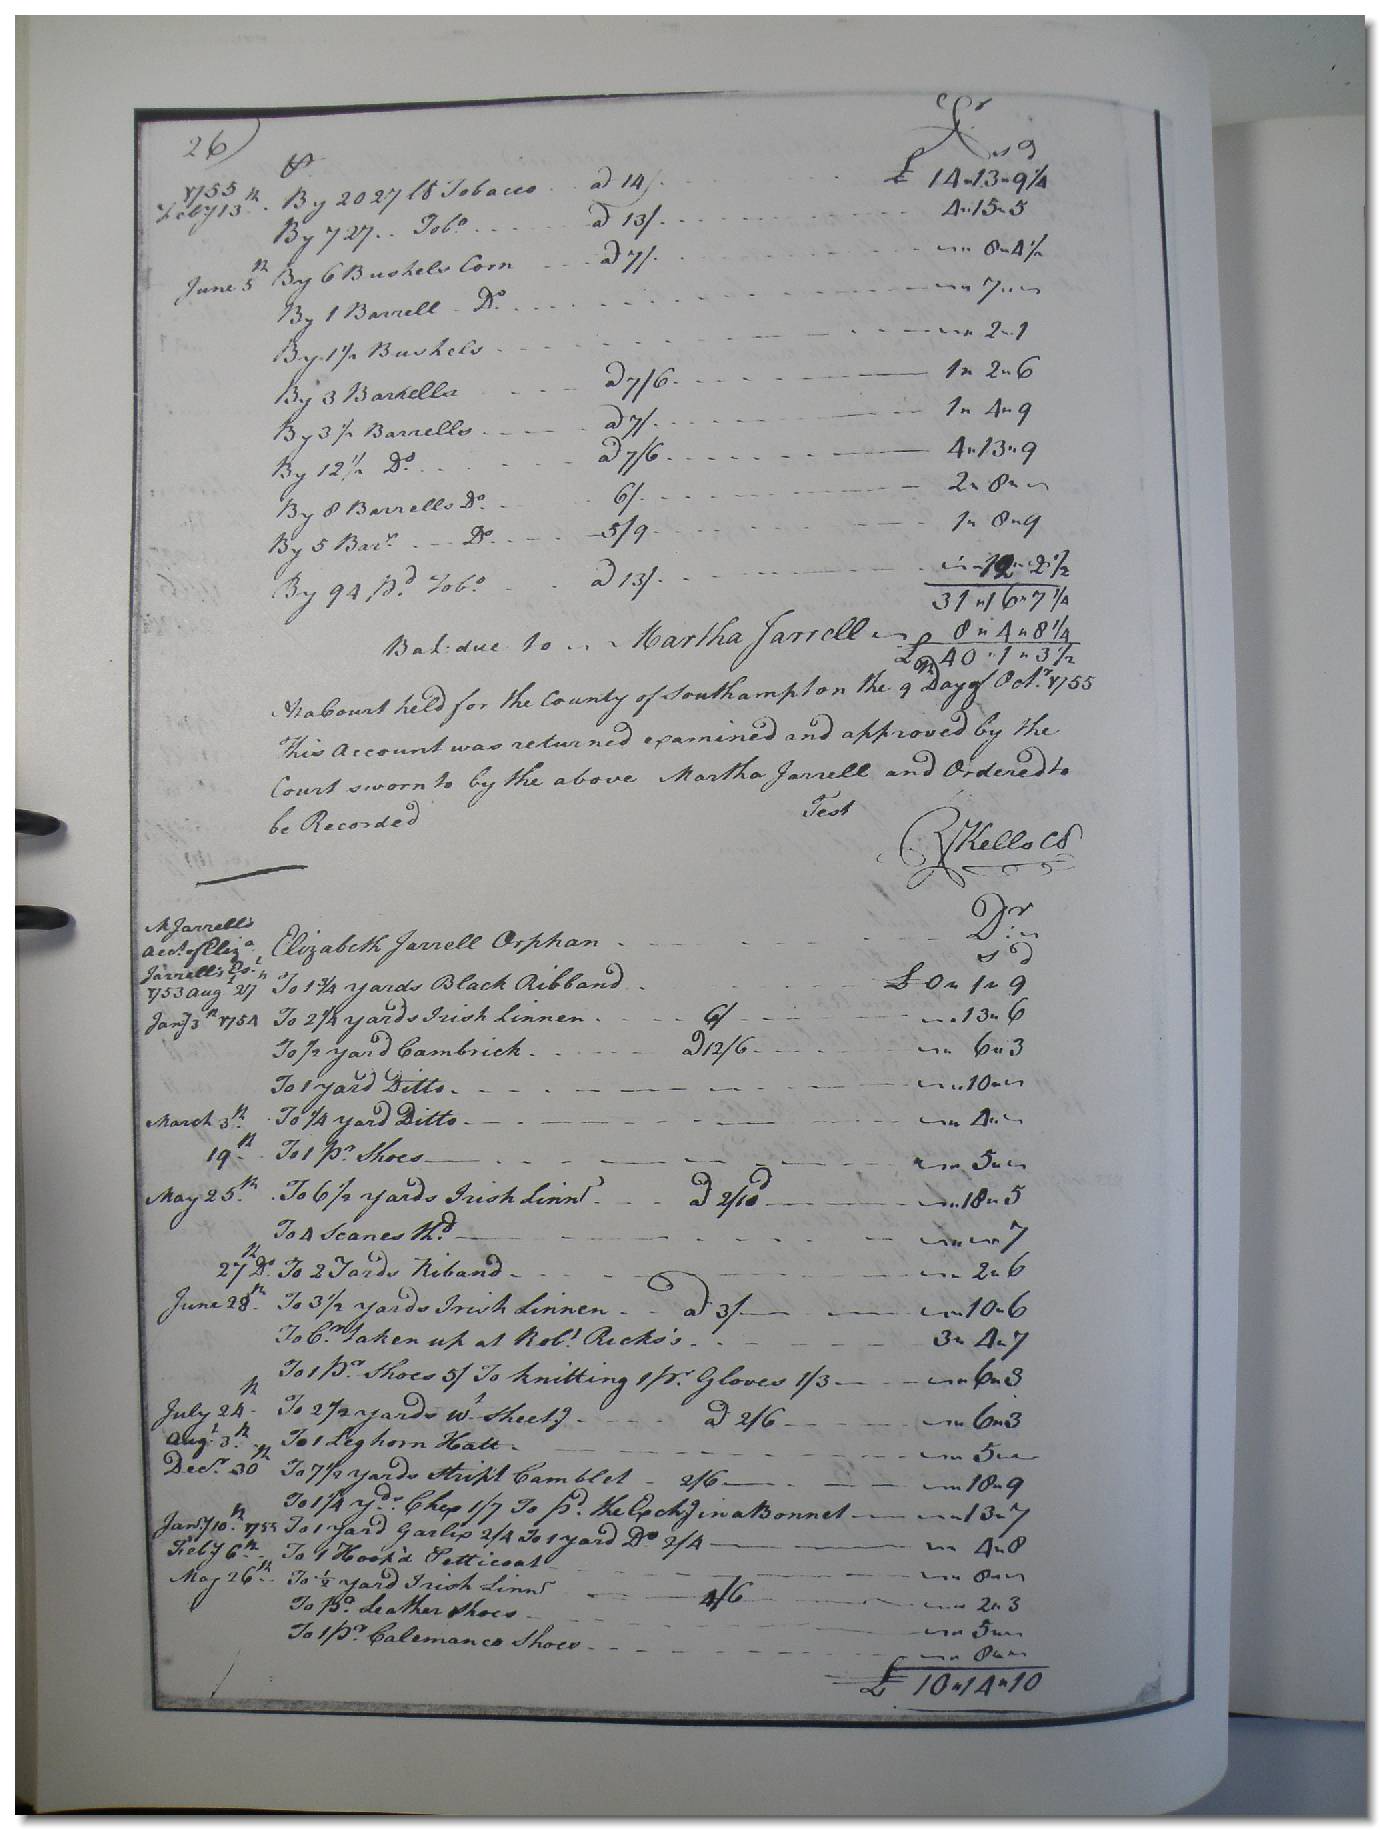 26)
Cr
£ s d
1755
Feby 13th By 2027 lb Tobacco ad 14/ £ 14 " 13 " 9 1/4
By 727 Tobo ad 13/ 4 " 15 " 5
June 5th By 6 Bushels Corn ad 7/ " 8 " 4 1/2
By 1 Barrell Do " 7 "
By 1 1/2 Bushels " 2 " 1
By 3 Barrells ad 7/6 1 " 2 " 6
By 3 1/2 Barrells ad 7/ 1 " 4 " 9
By 12 1/2 Do ad 7/6 4 " 13 " 9
By 8 Barrells Do 6/ 2 " 8 "
By 5 Barrs Do 5/9 1 " 8 " 9
By 94 pd Tobo ad 13/ " 12 " 2 1/2
31 " 16 " 7 1/4
Bal: due to Martha Jarrell 8 " 4 " 8 1/4
£ 40 " 1 " 3 1/2
At a Court held for the County of Southampton the 9th Day of Octr 1755
This Account was returned examined and approved by the
Court sworn to by the above Martha Jarrell and Ordered to
be Recorded Test
R Kello C8
M Jarrell's
Acct of Eliza
Jarrell's Est
Elizabeth Jarrell Orphan Dr
s d
1753 Aug 27th To 1 3/4 yards Black Ribband £ 0 " 1 " 9
Jany 3th 1754 To 2 1/4 yards Irish Linnen 6/ " 13 " 6
To 1/2 yard Cambrick ad 12/6 " 6 " 3
To 1 yard Ditto " 10 "
March 3th To 1/4 yard Ditto " 4 "
19th To 1 pr Shoes " 5 "
May 25th To 6 1/2 yards Irish Linn ad 2/10d " 18 " 5
To 4 Scanes thd " " 7
27th Do To 2 Yards Riband " 2 " 6
June 28th To 3 1/2 yards Irish Linnen ad 3/ " 10 " 6
To taken up at Robt Ricks's 3 " 4 " 7
To 1 pr Shoes 5/ To Knitting 1 pr Gloves 1/3 " 6 " 3
July 24th To 2 1/2 yards wt Sheetg ad 2/6 " 6 " 3
Augt 3th To 1 Leghorn Hatt " 5 "
Decr 30th To 7 1/2 yards Stript Camblet 2/6 " 18 " 9
To 1 1/4 yds Chex 1/7 To pd the Exchg in a Bonnet " 13 " 7
Jany 10th 1755 To 1 yard Garlix 2/4 To 1 yard Do 2/4 " 4 " 8
Feby 6th To 1 Hoop'd Petticoat " 8 "
May 26th To 1/2 yard Irish Linn 4/6 " 2 " 3
To pr Leather Shoes " 5 "
To 1 pr Calemanco Shoes " 8 "
£ 10 " 14 " 10